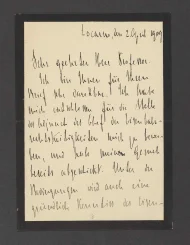 Locarno den 2. April 1909
Sehr geehrter Herr Professor
Ich bin Ihnen für Ihren
Brief sehr dankbar. Ich habe
mich entschlossen für die Stelle
des
mich zu bewer-
ben, und habe meinen Gesuch
bereits abgeschickt. Unter den
wird auch eine
gründliche Kenntniss der